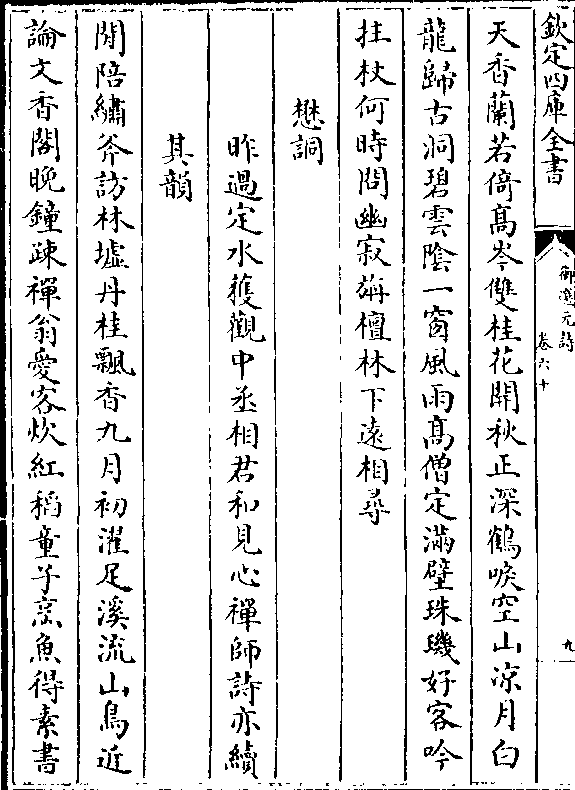 欽定四庫全書
御選元詩
卷六十
九
天香蘭若倚髙岑雙桂花開秋正深鶴唳空山凉月白
龍歸古洞碧雲陰一窗風雨髙僧定滿壁珠璣好客吟
拄杖何時問幽寂旃檀林下遠相尋
懋詷
昨過定水獲觀中丞相君和見心禪師詩亦續
其韻
閒陪繡斧訪林墟丹桂飄香九月初濯足溪流山鳥近
論文香閣晚鐘疎禪翁愛客炊紅稻童子烹魚得素書